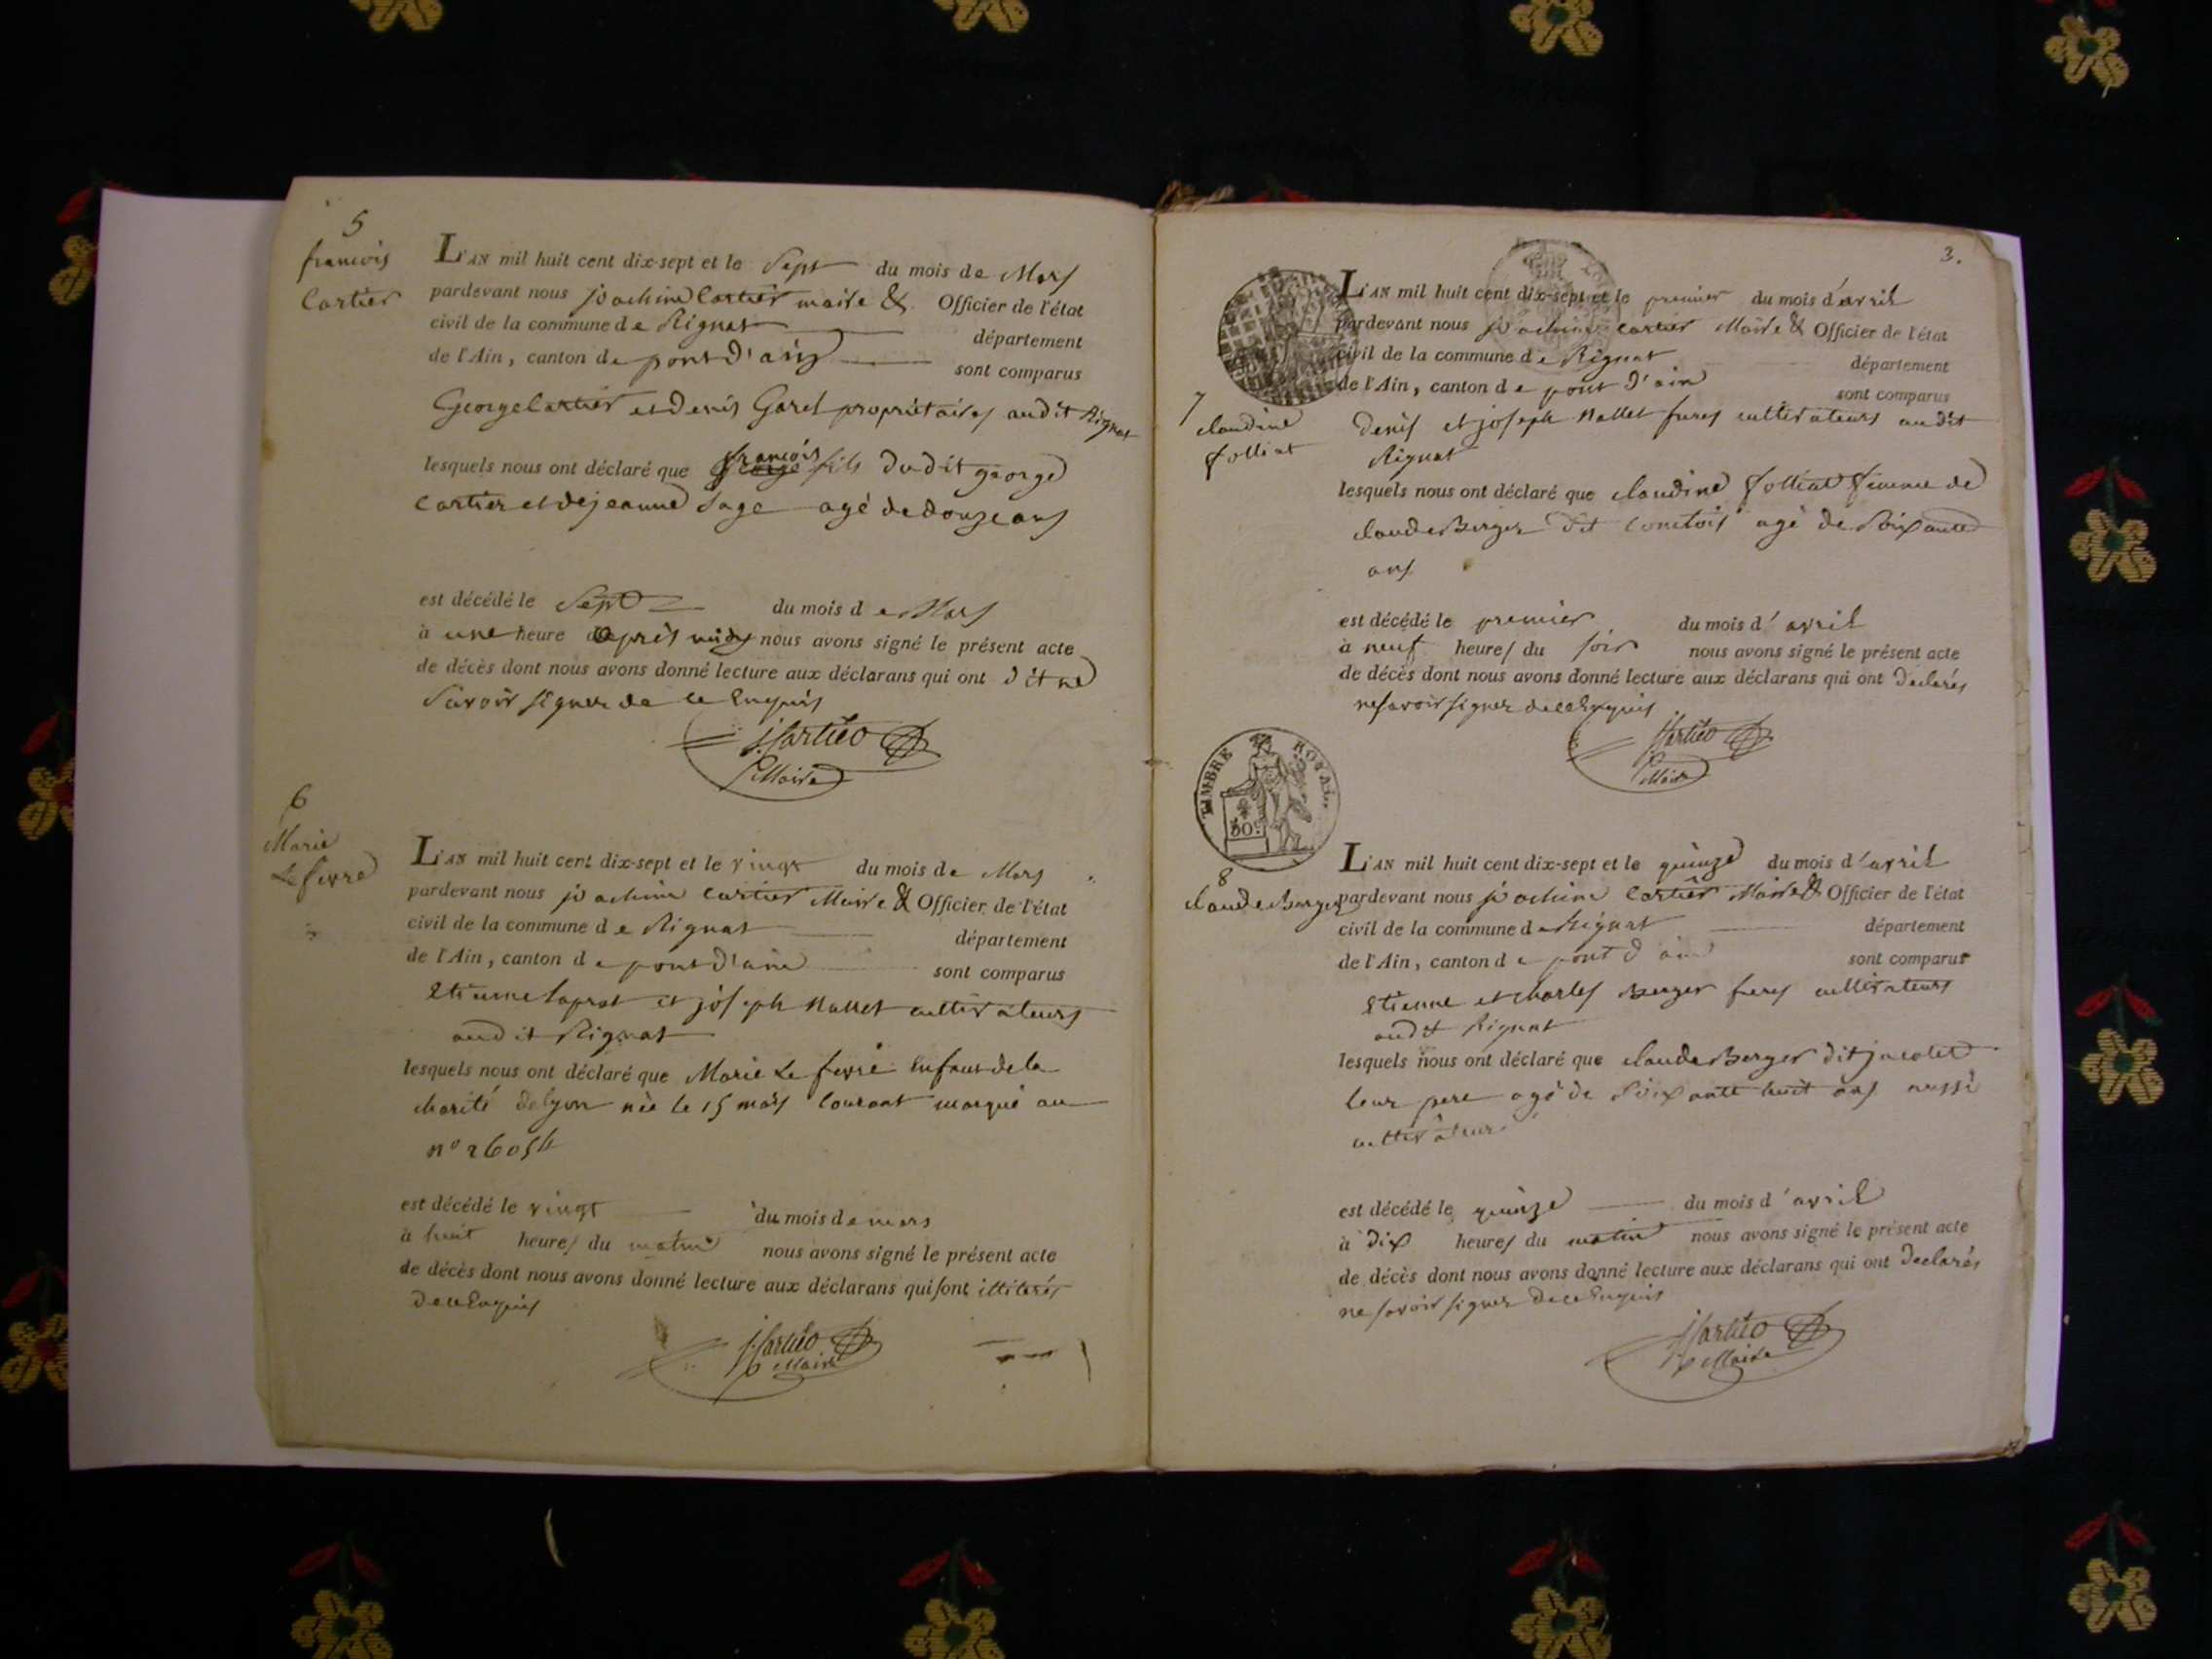 5
francois
Cartier
L'AN mil huit cent dix-sept et le Sept du mois de Mars
pardevant nous joachim Cartier maire & Officier de l'état
civil de la commune de Rignat département
de l'Ain, canton de pont d'ain sont comparus
George Cartier et Denis Garel propriétaires audit Rignat
lesquels nous ont déclaré que francois fils dudit george
Cartier et de jeanne Sage agé de douze ans
est décédé le Sept du mois de Mars
à une heure après midy nous avons signé le présent acte
de décès dont nous avons donné lecture aux déclarans qui ont dit ne
Savoir signer de ce Enquis
J. Cartier
Maire
6
Marie
Le fevre
L'AN mil huit cent dix-sept et le vingt du mois de Mars
pardevant nous joachim Cartier Maire & Officier de l'état
civil de la commune de Rignat département
de l'Ain, canton de pont d'ain sont comparus
Etienne et joseph Nallet cultivateurs
audit Rignat
lesquels nous ont déclaré que Marie Le fevre Enfant de la
charité de lyon née le 15 mars Courant marqué au
n°
est décédé le vingt du mois de mars
à huit heures du matin nous avons signé le présent acte
de décès dont nous avons donné lecture aux déclarans qui sont illiterés
de ce Enquis
J. Cartier
Maire
3.
7
claudine
folliat
L'AN mil huit cent dix-sept et le premier du mois d'avril
pardevant nous joachim Cartier Maire & Officier de l'état
civil de la commune de Rignat département
de l'Ain, canton de pont d'ain sont comparus
Denis et joseph Nallet freres cultivateurs audit
Rignat
lesquels nous ont déclaré que claudine folliat femme de
claude Berger dit comtois agé de Soixante
ans
est décédé le premier du mois d'avril
à neuf heures du soir nous avons signé le présent acte
de décès dont nous avons donné lecture aux déclarans qui ont declarés
ne savoir signer de ce Enquis
J. Cartier
Maire
TIMBRE ROYAL
50c
8
claude Berger
L'AN mil huit cent dix-sept et le quinze du mois d'avril
pardevant nous joachim Cartier Maire & Officier de l'état
civil de la commune de Rignat département
de l'Ain, canton de pont d'ain sont comparus
Etienne et charles Berger freres cultivateurs
audit Rignat
lesquels nous ont déclaré que claude Berger dit jacolet
leur pere agé de Soixante huit ans aussi
cultivateur
est décédé le quinze du mois d'avril
à dix heures du matin nous avons signé le présent acte
de décès dont nous avons donné lecture aux déclarans qui ont declarés
ne savoir signer de ce Enquis
J. Cartier
Maire